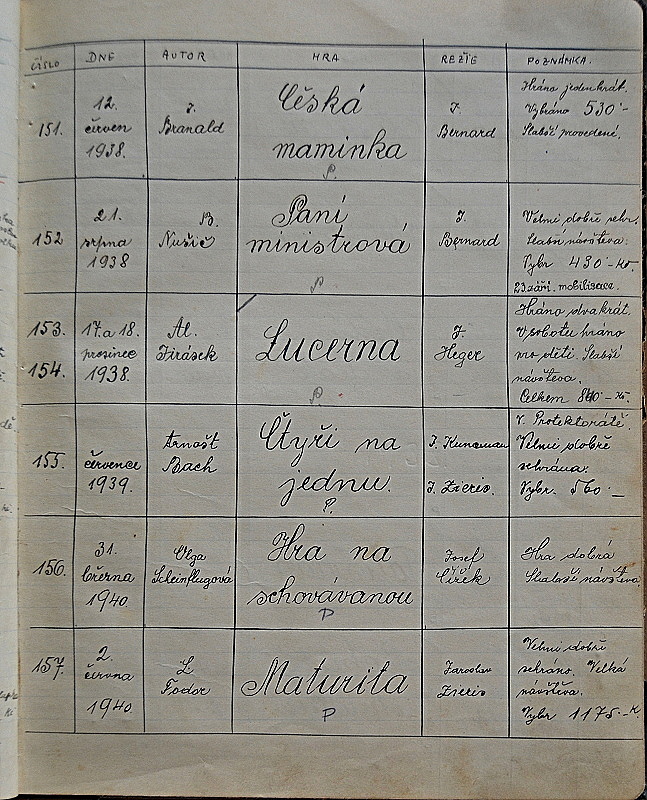 ČÍSLO DNE AUTOR HRA REŽIE POZNÁMKA.
151.
12.
červen
1938.
J.
Branald
Česká
maminka
P.
J.
Bernard
Hráno jedenkrát.
Vybráno 530·-
Slabší provedené.
152
21.
srpna
1938
B.
Nušič
Paní
ministrová
P
J.
Bernard
Velmi dobře sehr.
Slabší návštěva.
Vybr 430·-Kč.
23 září. mobilisace.
153.
154.
17. a 18.
prosince
1938.
Al.
Jirásek
Lucerna
P.
J.
Heger
Hráno dvakrát.
V sobotu hráno
pro děti. Slabší
návštěva.
Celkem 840·- Kč.
155.
července
1939.
Arnošt
Bach
Čtyři na
jednu.
P.
J. Kuneman
J. Zieris.
V. Protektorátě.
Velmi dobře
sehrána.
Vybr. 560·-
156.
31.
března
1940.
Olga
Scheinflugová
Hra na
schovávanou
P
Josef
Čížek
Hra dobrá
Slabší návštěva
157.
2.
června
1940
L.
Fodor
Maturita
P
Jaroslav
Zieris
Velmi dobře
sehráno. Velká
návštěva.
Vybr 1175·-K